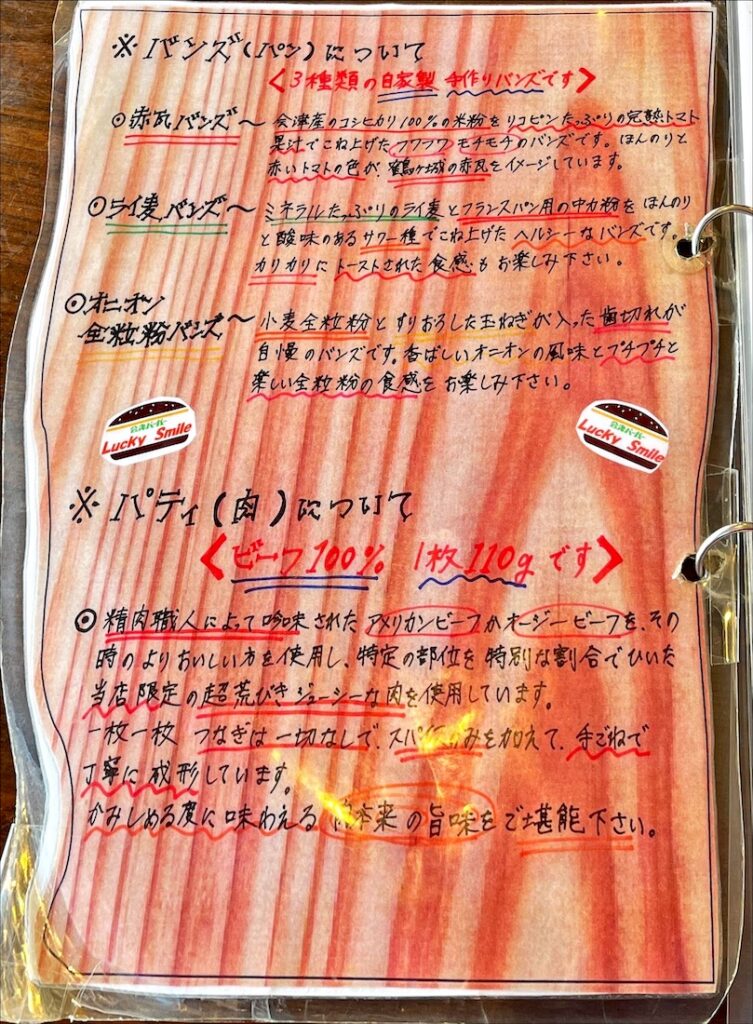 ※ バンズ(パン)について
<3種類の自家製 手作りバンズです>
◎赤瓦バンズ〜 会津産のコシヒカリ100%の米粉をリコピンたっぷりの完熟トマト
果汁でこね上げたフワフワモチモチのバンズです。ほんのりと
赤いトマトの色が、鶴ヶ城の赤瓦をイメージしています。
◎ライ麦バンズ〜 ミネラルたっぷりのライ麦とフランスパン用の中力粉を ほんのり
と酸味のあるサワー種でこね上げた ヘルシーなバンズです。
カリカリに トーストされた食感もお楽しみ下さい。
◎オニオン
全粒粉バンズ〜 小麦全粒粉と すりおろした玉ねぎが入った歯切れが
自慢のバンズです。香ばしいオニオンの風味とプチプチと
楽しい全粒粉の食感をお楽しみ下さい。
会津バーガー
Lucky Smile
会津バーガー
Lucky Smile
※ パティ(肉)について
<ビーフ100% 1枚110gです>
◎ 精肉職人によって吟味された アメリカンビーフかオージービーフを、その
時のよりおいしい方を使用し、特定の部位を特別な割合でひいた
当店限定の超荒びきジューシーな肉を使用しています。
一枚一枚 つなぎは一切なしで、スパイスのみを加えて、手ごねで
丁寧に成形しています。
かみしめる度に味わえる 肉本来の旨味をご堪能下さい。